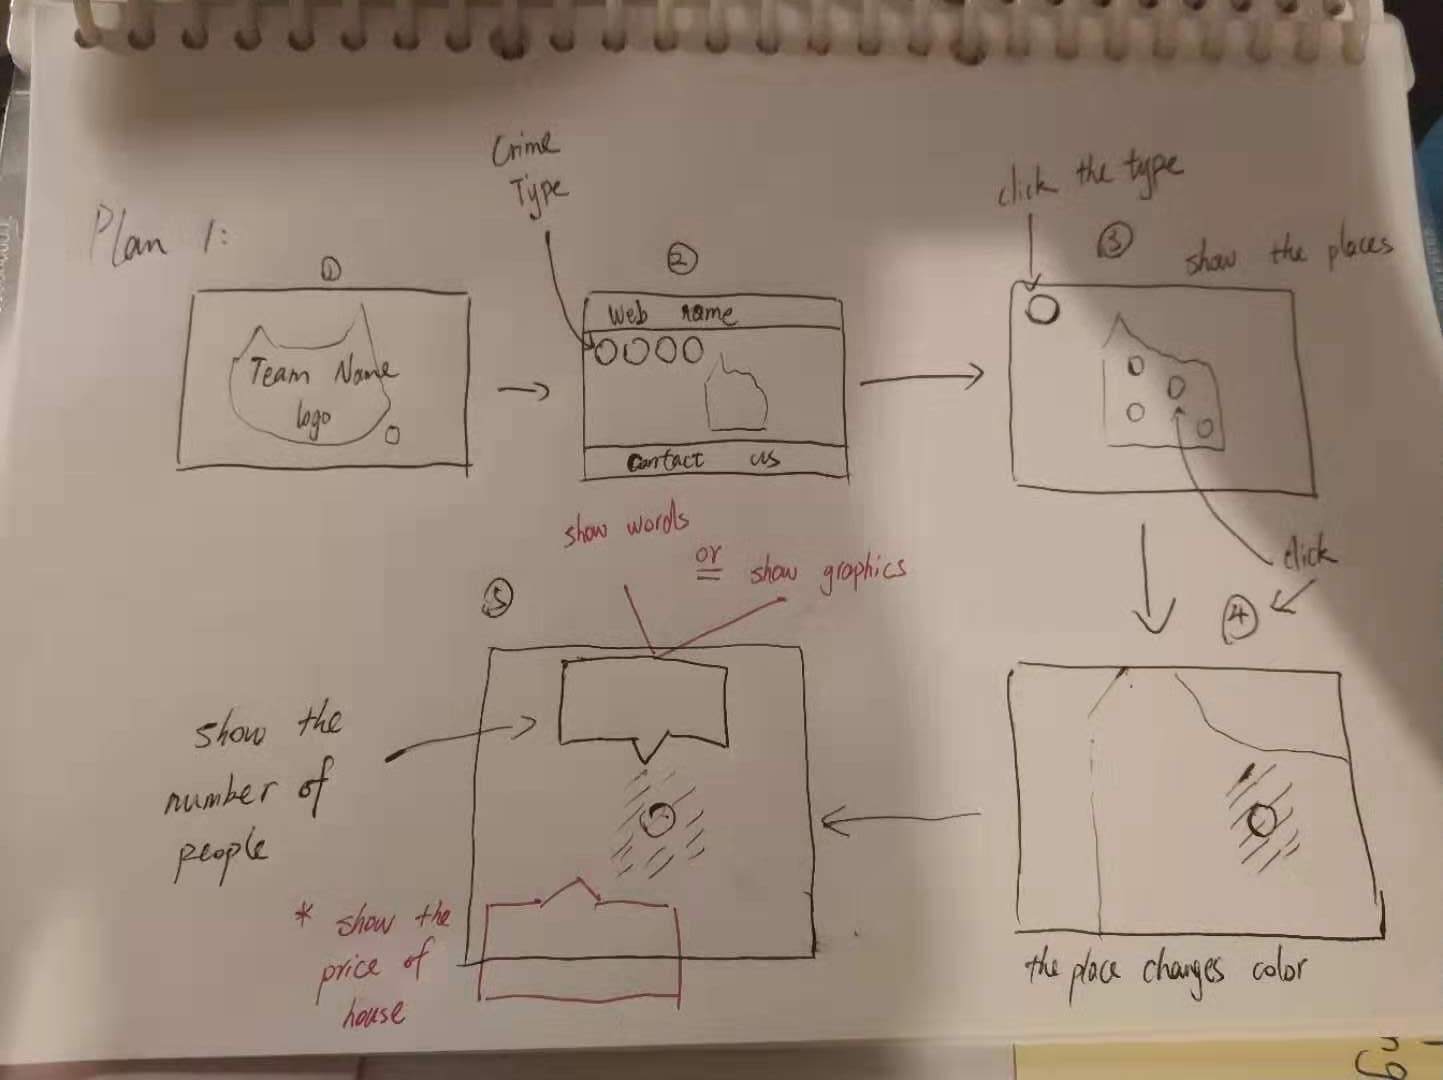 Plan 1:
①
Team Name
logo
Crime
Type
②
Web name
Contact us
click the type
③ show the places
click
④
the place changes color
⑤
show words
or
show graphics
show the
number of
people
* show the
price of
house